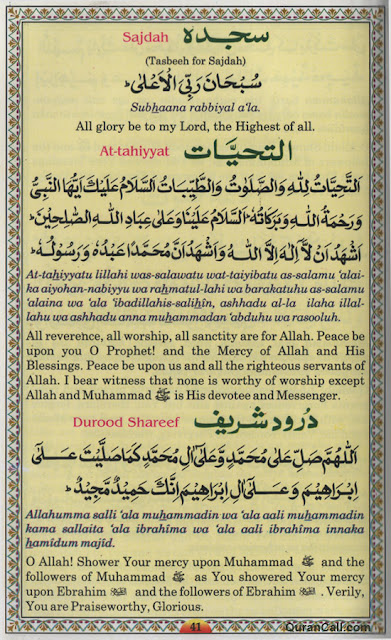 Sajdah سجدہ
(Tasbeeh for Sajdah)
سُبْحَانَ رَبِّیَ الْاَعْلٰی ؕ
Subhaana rabbiyal a'la.
All glory be to my Lord, the Highest of all.
At-tahiyyat التحیَّات
اَلتَّحِیَّاتُ لِلّٰهِ وَالصَّلَوٰتُ وَالطَّیِّبَاتُ اَلسَّلَامُ عَلَیْكَ اَیُّهَا النَّبِیُّ
وَرَحْمَةُ اللّٰهِ وَبَرَكَاتُهٗ ؕ اَلسَّلَامُ عَلَیْنَا وَعَلٰی عِبَادِ اللّٰهِ الصّٰلِحِیْنَ ؕ
اَشْهَدُ اَنْ لَّاۤ اِلٰهَ اِلَّا اللّٰهُ وَاَشْهَدُ اَنَّ مُحَمَّدًا عَبْدُهٗ وَرَسُوْلُهٗ ؕ
At-tahiyyatu lillahi was-salawatu wat-taiyibatu as-salamu 'alai-
ka aiyohan-nabiyyu wa rahmatul-lahi wa barakatuhu as-salamu
'alaina wa 'ala 'ibadillahis-salihîn, ashhadu al-la ilaha illal-
lahu wa ashhadu anna muhammadan 'abduhu wa rasooluh.
All reverence, all worship, all sanctity are for Allah. Peace be
upon you O Prophet! and the Mercy of Allah and His
Blessings. Peace be upon us and all the righteous servants of
Allah. I bear witness that none is worthy of worship except
Allah and Muhammad ﷺ is His devotee and Messenger.
Durood Shareef درود شریف
اَللّٰهُمَّ صَلِّ عَلٰی مُحَمَّدٍ وَّعَلٰۤی اٰلِ مُحَمَّدٍ كَمَا صَلَّیْتَ عَلٰۤی
اِبْرَاهِیْمَ وَعَلٰۤی اٰلِ اِبْرَاهِیْمَ اِنَّكَ حَمِیْدٌ مَّجِیْدٌ ؕ
Allahumma salli 'ala muhammadin wa 'ala aali muhammadin
kama sallaita 'ala ibrahîma wa 'ala aali ibrahîma innaka
hamîdum majîd.
O Allah! Shower Your mercy upon Muhammad ﷺ and the
followers of Muhammad ﷺ as You showered Your mercy
upon Ebrahim and the followers of Ebrahim . Verily,
You are Praiseworthy, Glorious.
41
QuranCall.com